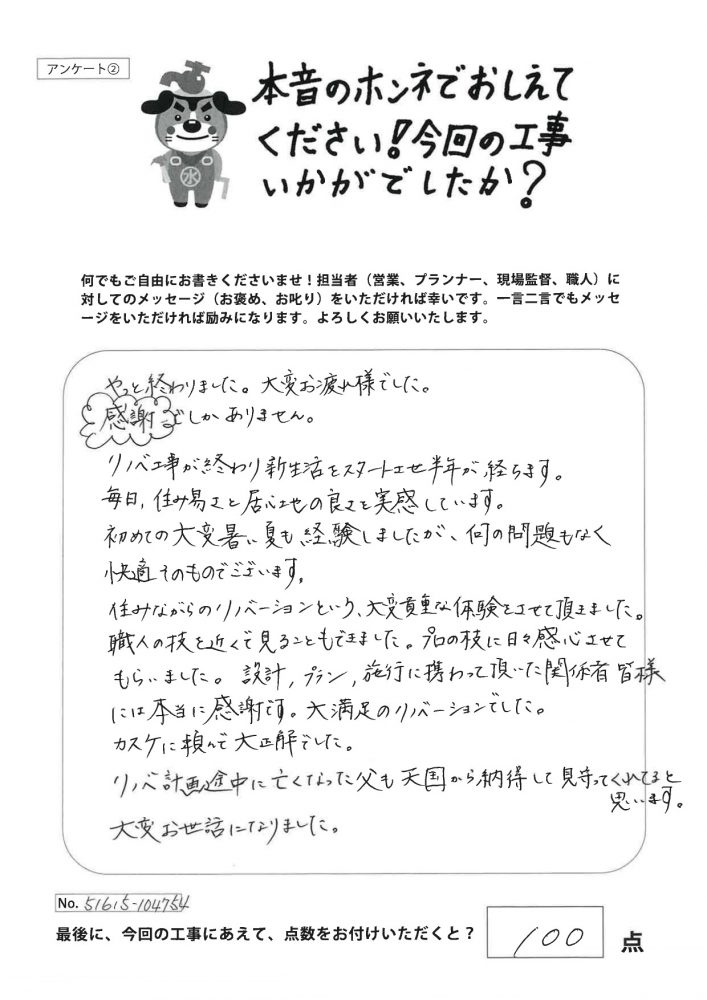 アンケート②
本音のホンネでおしえて
ください!今回の工事
いかがでしたか?
水
何でもご自由にお書きくださいませ!担当者(営業、プランナー、現場監督、職人)に
対してのメッセージ(お褒め、お叱り)をいただければ幸いです。一言二言でもメッセ
ージをいただければ励みになります。よろしくお願いいたします。
やっと終わりました。大変お疲れ様でした。
感謝でしかありません。
リノベ工事が終わり新生活をスタートさせ半年が経ちます。
毎日,住み易さと居心地の良さを実感しています。
初めての大変暑い夏も経験しましたが、何の問題もなく
快適そのものでございます。
住みながらのリノベーションという、大変貴重な体験をさせて頂きました。
職人の技を近くで見ることもできました。プロの技に日々感心させて
もらいました。設計,プラン,施行に携わって頂いた関係者皆様
には本当に感謝です。大満足のリノベーションでした。
カスケに頼んで大正解でした。
リノベ計画途中に亡くなった父も天国から納得して見守ってくれてると
思います。
大変お世話になりました。
No. 51615-104754
最後に、今回の工事にあえて、点数をお付けいただくと? 100 点